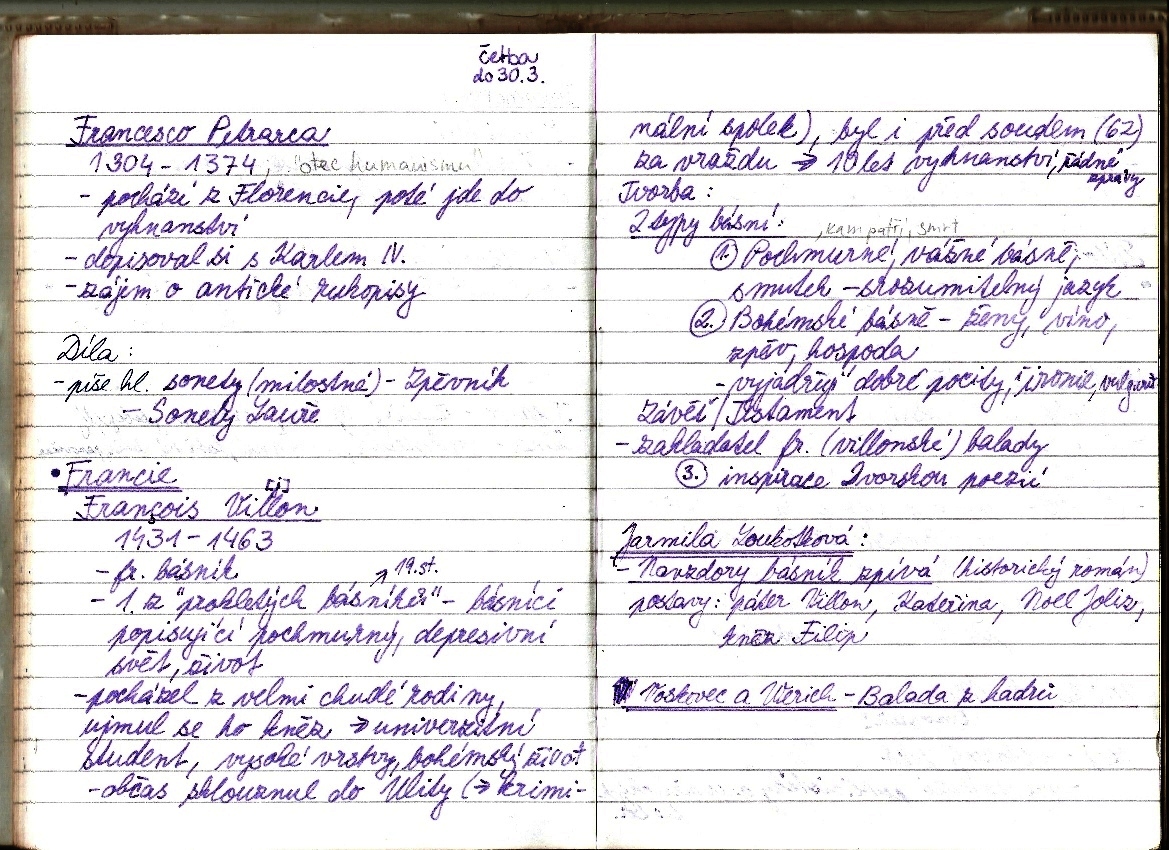 četba
do 30.3.
Francesco Petrarca
1304 - 1374, "otec humanismu"
- pochází z Florencie, poté jde do
vyhnanství
- dopisoval si s Karlem IV.
- zájem o antické rukopisy
Díla:
- píše hl. sonety (milostné) - Zpěvník
- Sonety Lauře
• Francie
[i]
François Villon
1431 - 1463
- fr. básník
→ 19. st.
- 1. z "prokletých básníků" - básníci
popisující pochmurný, depresivní
svět, život
- pocházel z velmi chudé rodiny,
ujmul se ho kněz → univerzitní
student, vysoké vrstvy, bohémský život
- občas sklouznul do Ulity (→ krimi-
nální spolek), byl i před soudem (62)
za vraždu → 10 let vyhnanství, žádné
zprávy
Tvorba:
2 typy básní:
, kam patří, smrt
1. Pochmurné, vážné básně,
smutek - srozumitelný jazyk
2. Bohémské básně - ženy, víno,
zpěv, hospoda
- vyjadřují "dobré pocity, ironie,
Závěť / Testament
- zakladatel fr. (villonské) balady
3. inspirace Dvorskou poezií
Jarmila Loukotková:
- Navzdory básník zpívá (historický román)
postavy: páter Villon, Kateřina, Noel Jolis,
kněz Filip
Voskovec a Werich - Balada z hadrů